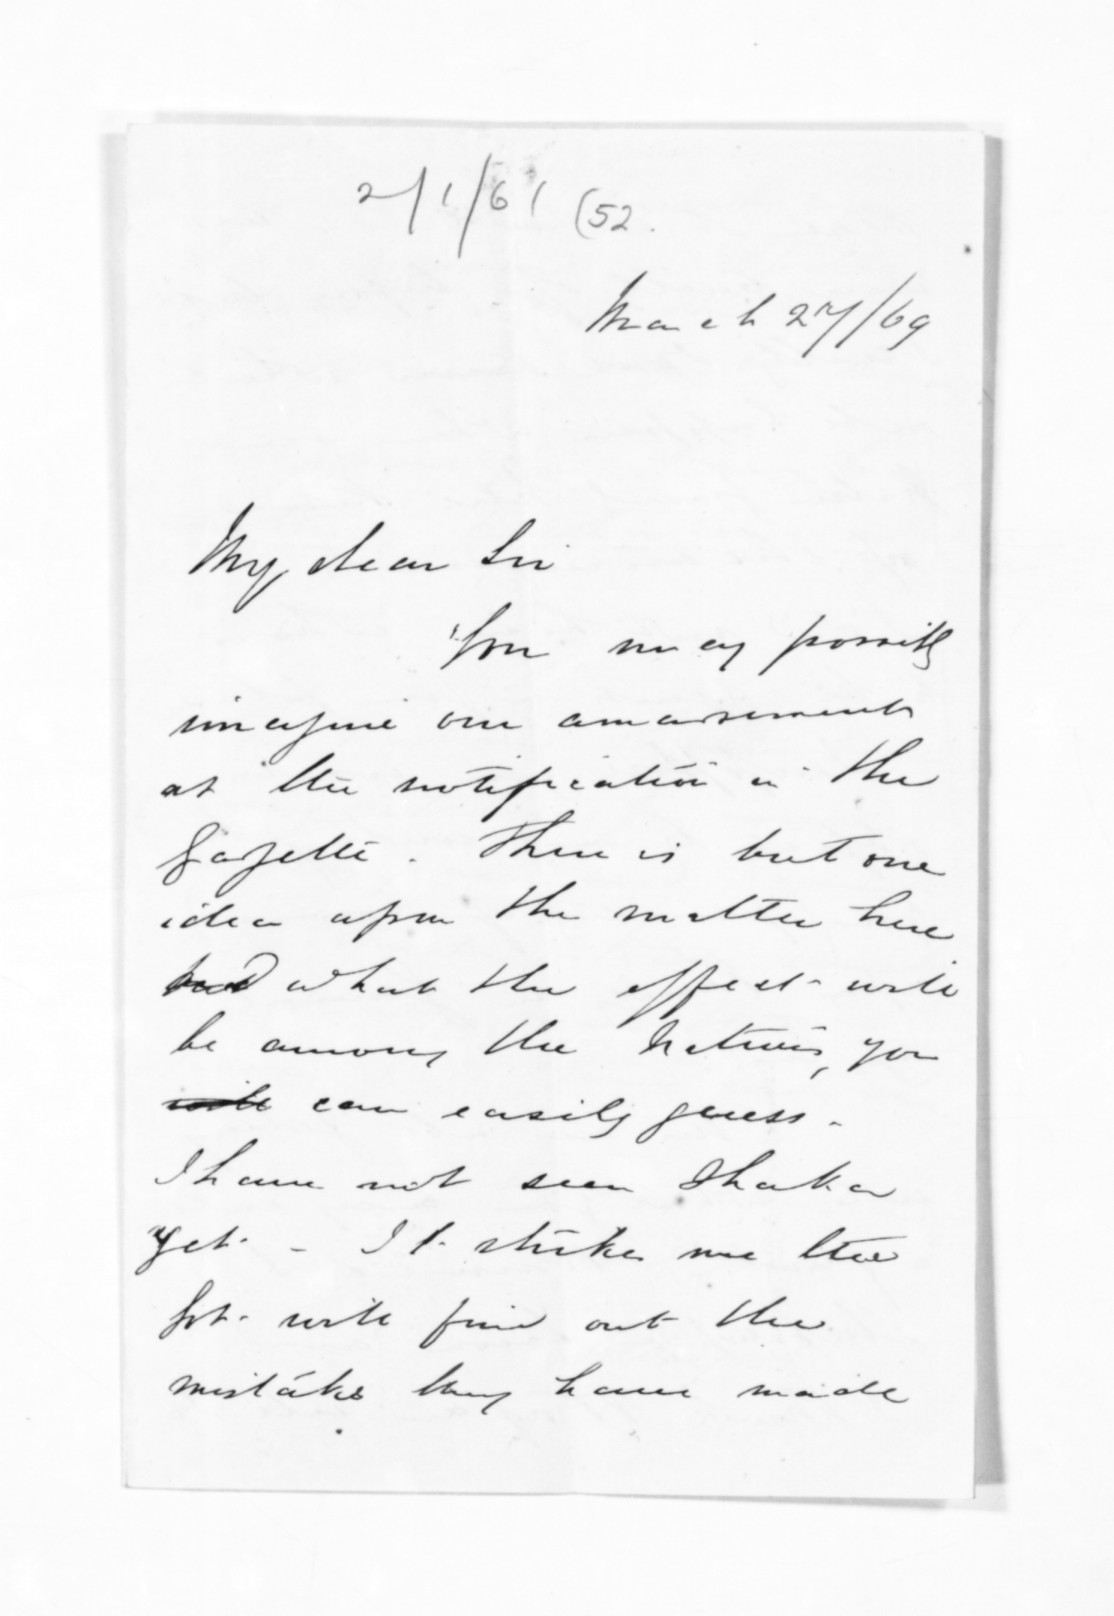 2/1/61 (52.
March 27/69
My dear Sir
You may possibly
imagine our amazement
at the notification in the
Gazette. There is but one
idea upon the matter here
and what the effect will
be among the Natives, you
will can easily guess.
I have not seen Ihaka
yet - It strikes me the
Govt. will find out the
mistake they have made